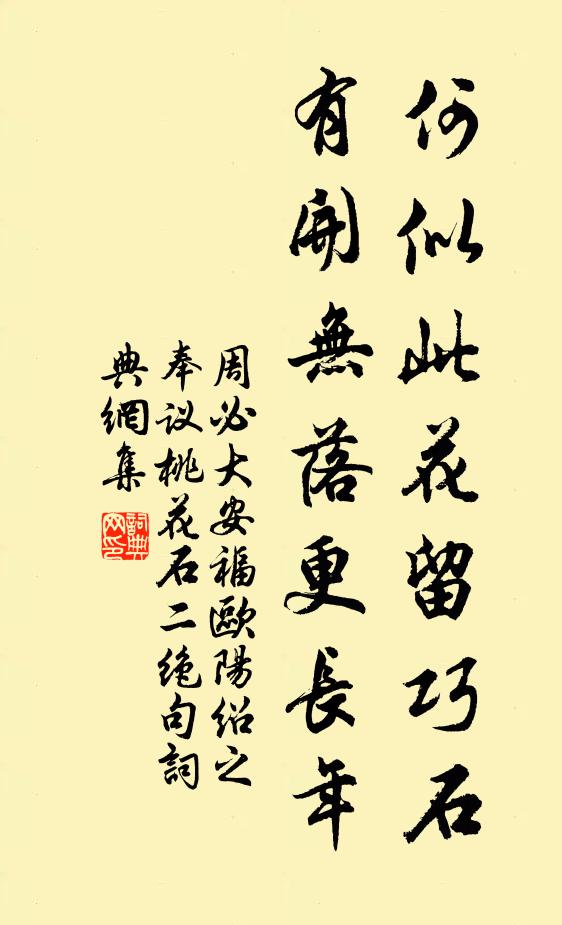 何似此花留巧石
有開無落更長年
周必大安福歐陽绍之
奉议桃花石二绝句詞
典網集
詞典网印